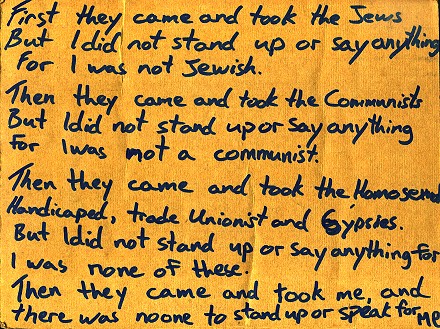 First they came and took the Jews
But I did not stand up or say anything
For I was not Jewish.
Then they came and took the Communists
But I did not stand up or say anything
For I was not a communist.
Then they came and took the, Homosexual
Handicaped, trade Unionist and Gypsies.
But I did not stand up or say anything for
I was none of these.
Then they came and took me, and
there was noone to stand up or speak for me